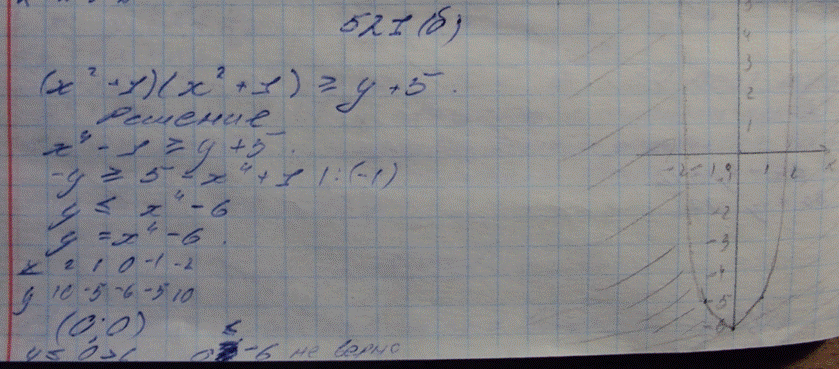 521(б)
(x² - 1)(x² + 1) ≥ y + 5.
Решение
x⁴ - 1 ≥ y + 5.
-y ≥ 5 - x⁴ + 1 | : (-1)
y ≤ x⁴ - 6
y = x⁴ - 6.
x 2 1 0 -1 -2
y 10 -5 -6 -5 10
(0; 0)
≤
-6 не верно
5
4
3
2
1
-2 -1 0 1 2 x
-2
-3
-4
-5
-6